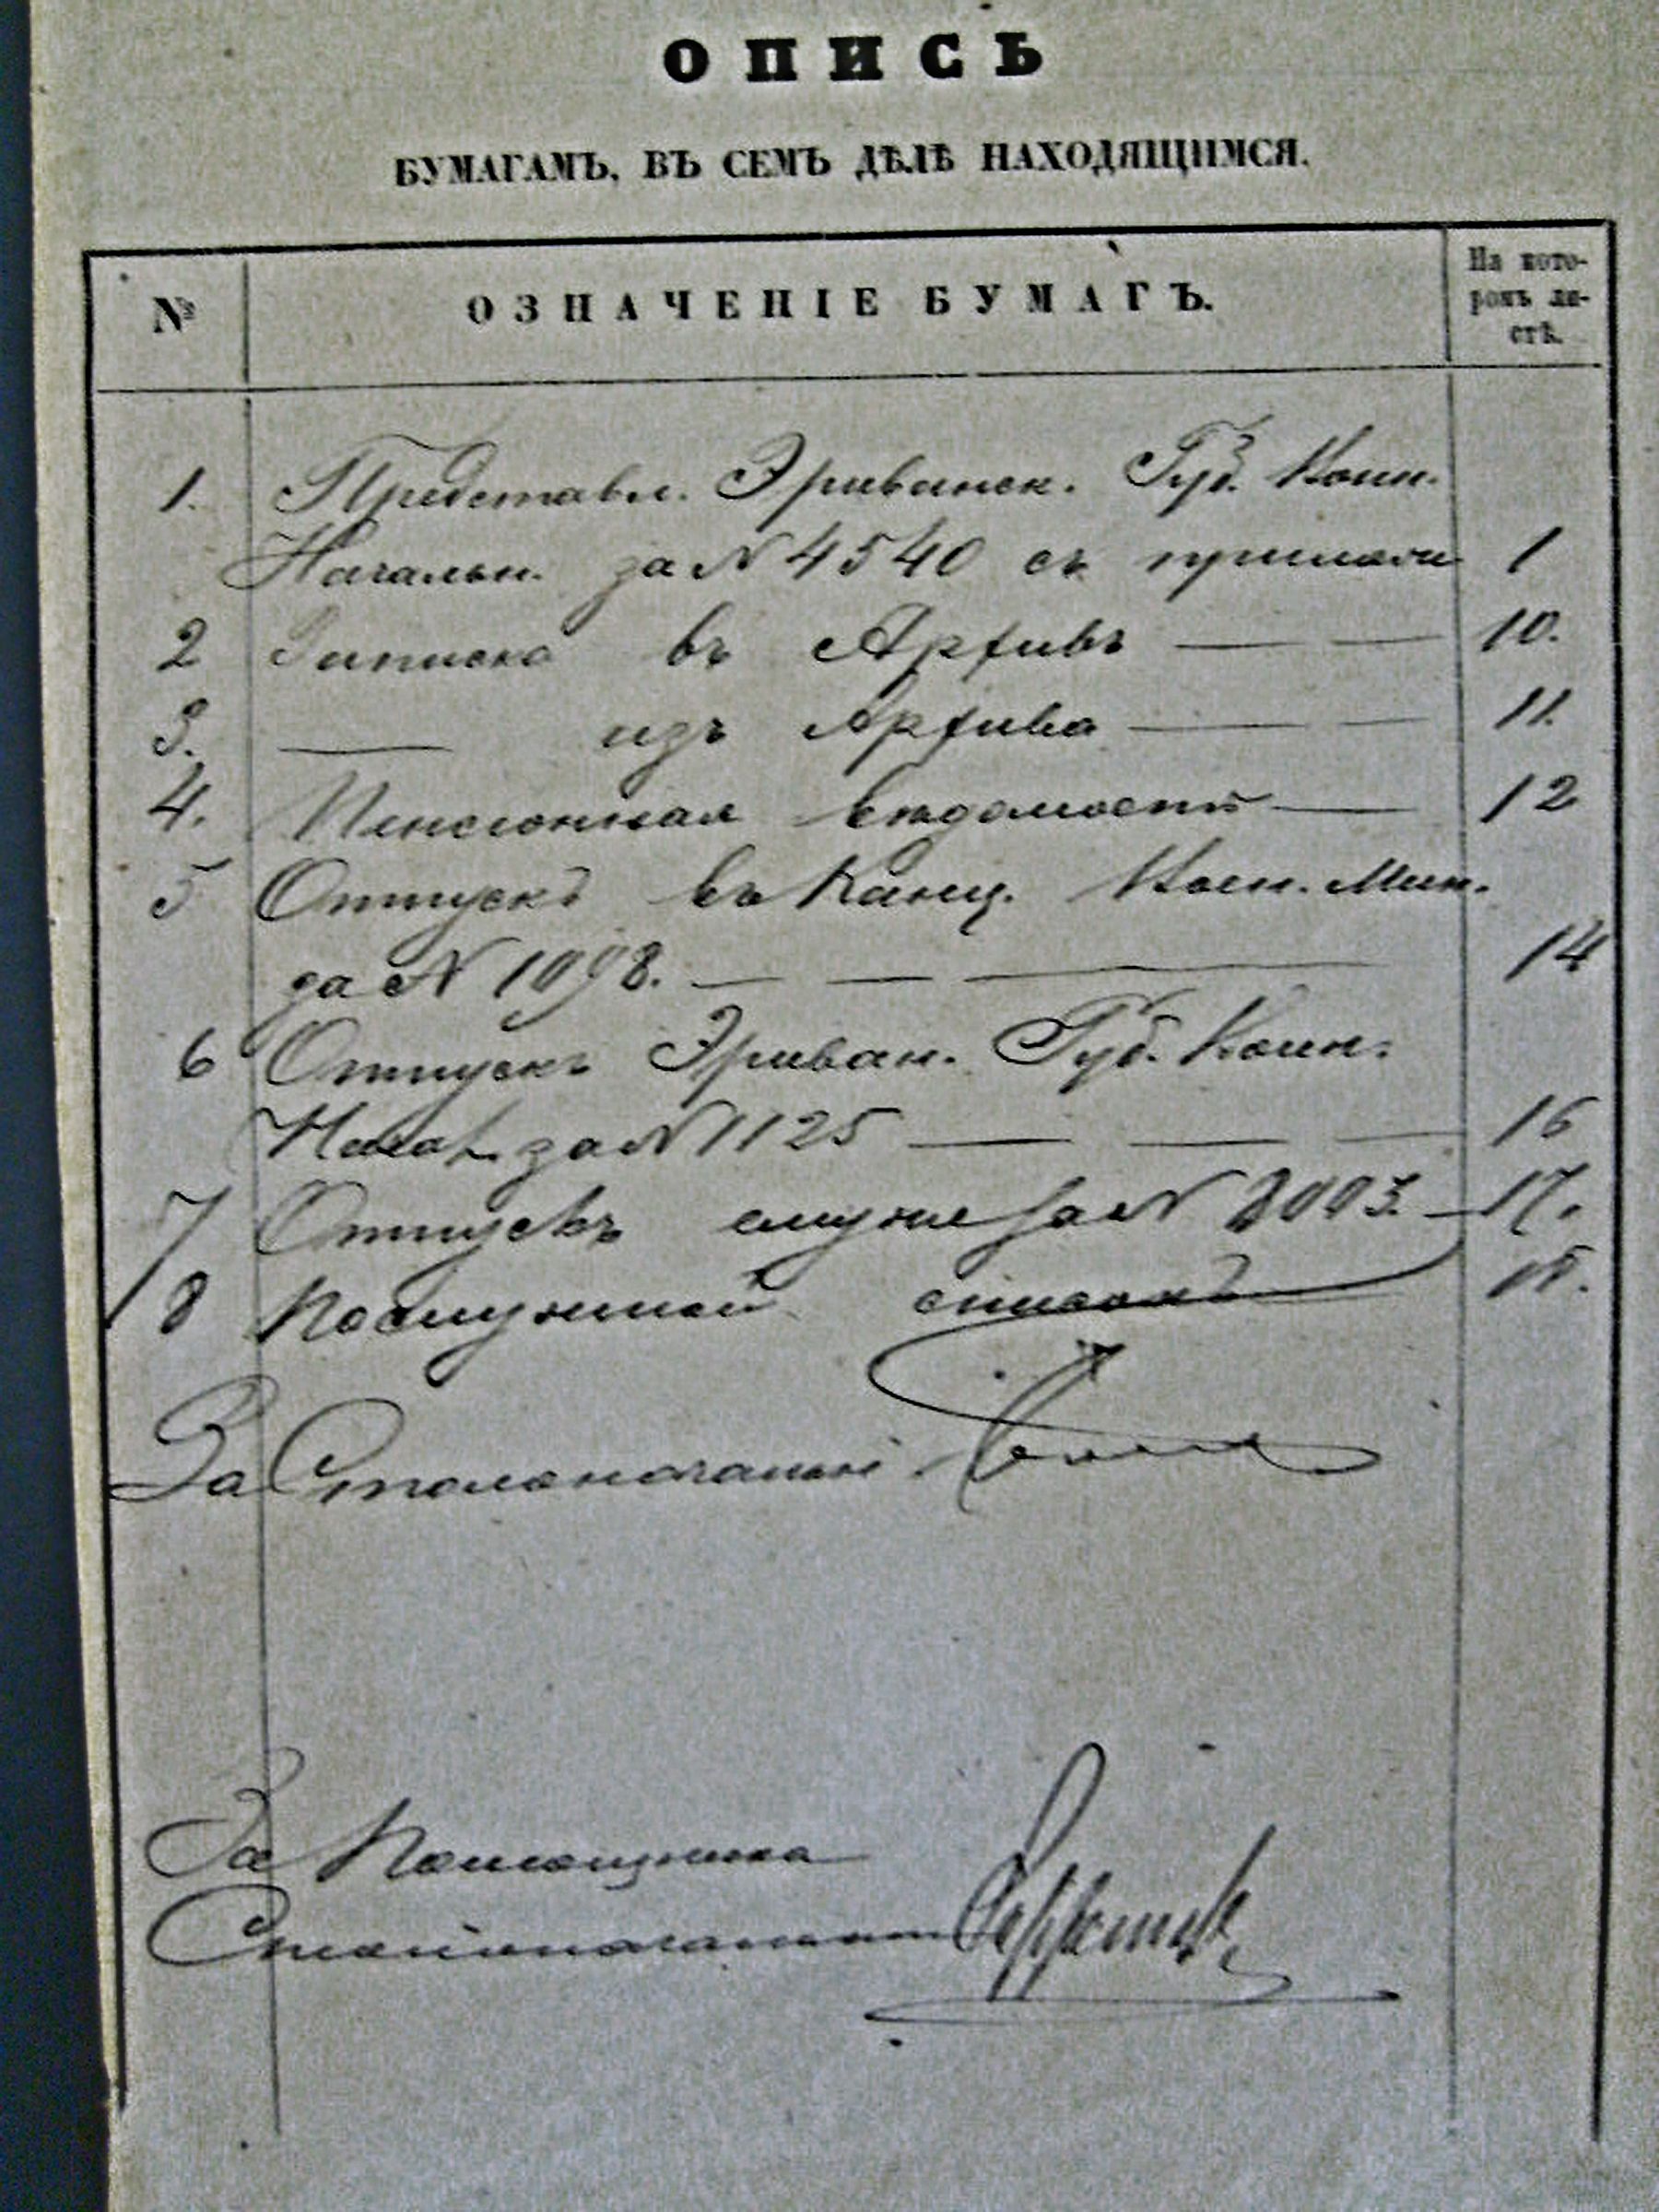 ОПИСЬ
БУМАГАМЪ, ВЪ СЕМЪ ДѢЛѢ НАХОДЯЩИМСЯ.
№ ОЗНАЧЕНІЕ БУМАГЪ. На кото-
ромъ ли-
стѣ.
1. Представл. Эриванск. Губ. Воин.
Начальн. за № 4540 съ прилож 1
2 Записка въ Архивъ — — 10.
3. — изъ Архива — — 11.
4. Пенсіонная вѣдомость — 12
5 Отпускъ въ Канц. Воен. Мин.
за № 1098. — — — 14
6 Отпускъ Эриван. Губ. Воин.
Начал. за № 1125 — — — 16
7 Отпускъ за № 2003. — 17.
8 Послужной списокъ 18.
За Столоначальн.
За Помощника
Столоначальника